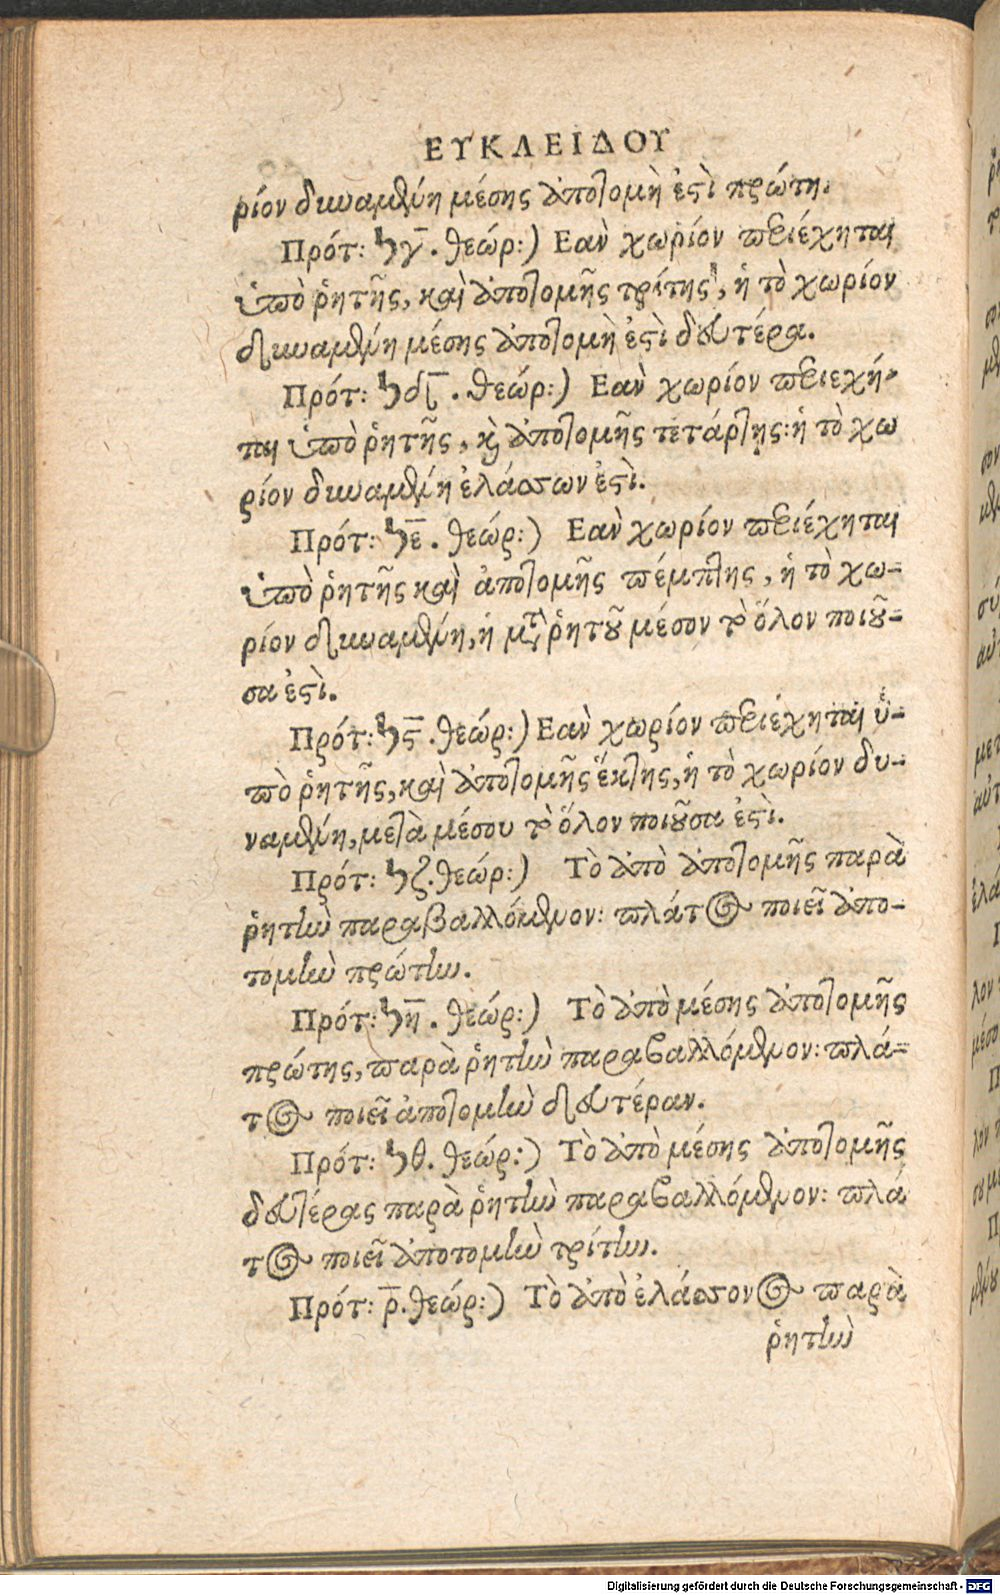 ΕΥΚΛΕΙΔΟΥ
ρίον δυναμένη μέσης ἀποτομὴ ἐστὶ πρώτη.
Πρότ: ϟγ. θεώρ:) Εαν χωρίον περιέχηται
ὑπὸ ῥητῆς, καὶ ἀποτομῆς τρίτης, ἡ τὸ χωρίον
δυναμένη μέσης ἀποτομὴ ἐστὶ δευτέρα.
Πρότ: ϟδ. θεώρ:) Εαν χωρίον περιεχή-
ται ὑπὸ ῥητῆς, καὶ ἀποτομῆς τετάρτης: ἡ τὸ χω
ρίον δυναμένη ἐλάσσων ἐστὶ.
Πρότ: ϟε. θεώρ:) Εαν χωρίον περιέχηται
ὑπὸ ῥητῆς καὶ ἀποτομῆς πέμπτης, ἡ τὸ χω-
ρίον δυναμένη, ἡ μετὰ ῥητοῦ μέσον τὸ ὅλον ποιοῦ-
σα ἐστὶ.
Πρότ: ϟϛ. θεώρ:) Εαν χωρίον περιέχηται ὑ-
πὸ ῥητῆς, καὶ ἀποτομῆς ἕκτης, ἡ τὸ χωρίον δυ-
ναμένη, μετὰ μέσου τὸ ὅλον ποιοῦσα ἐστὶ.
Πρότ: ϟζ. θεώρ:) Τὸ ἀπὸ ἀποτομῆς παρὰ
ῥητὴν παραβαλλόμενον: πλάτος ποιεῖ ἀπο-
τομὴν πρώτην.
Πρότ: ϟη. θεώρ:) Τὸ ἀπὸ μέσης ἀποτομῆς
πρώτης, παρὰ ῥητὴν παραβαλλόμενον: πλά-
τος ποιεῖ ἀποτομὴν δευτέραν.
Πρότ: ϟθ. θεώρ:) Τὸ ἀπὸ μέσης ἀποτομῆς
δευτέρας παρὰ ῥητὴν παραβαλλόμενον: πλά
τος ποιεῖ ἀποτομὴν τρίτην.
Πρότ: ρ. θεώρ:) Τὸ ἀπὸ ἐλάσσονος παρὰ
ῥητὴν
Digitalisierung gefördert durch die Deutsche Forschungsgemeinschaft - DFG